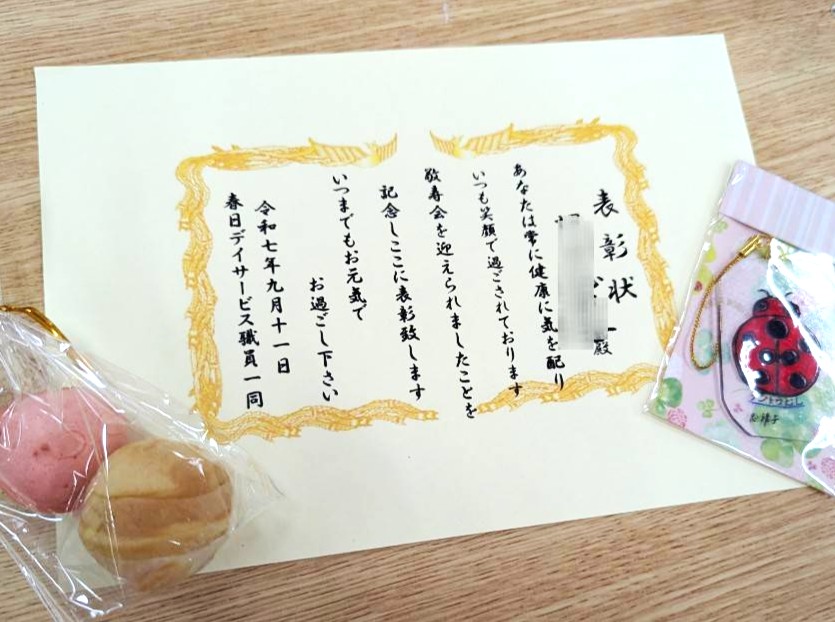 表彰状
殿
あなたは常に健康に気を配り
いつも笑顔で過ごされております
敬寿会を迎えられましたことを
記念しここに表彰致します
いつまでもお元気で
お過ごし下さい
令和七年九月十一日
春日デイサービス職員一同